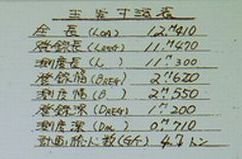 主要寸法表
全長 (LOA) 12.ᵐ410
登録長 (LREG) 11.ᵐ470
測度長 (L) 11.ᵐ300
登録幅 (BREG) 2.ᵐ620
測度幅 (B) 2.ᵐ550
登録深 (DREG) 1.ᵐ200
測度深 (DM) 0.ᵐ710
計画総トン数 (G/T) 4.9トン